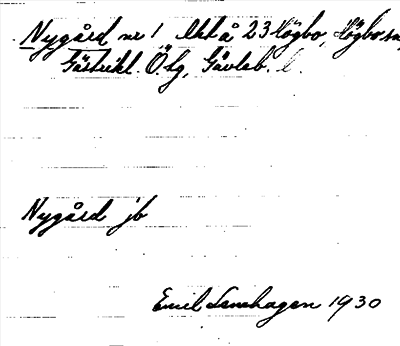 Nygård nr 1 lht å 23 Högbo, Högbo sn,
Gästrikl. Ö. tg, Gävleb. l.
Nygård jb
Emil Lanhagen 1930